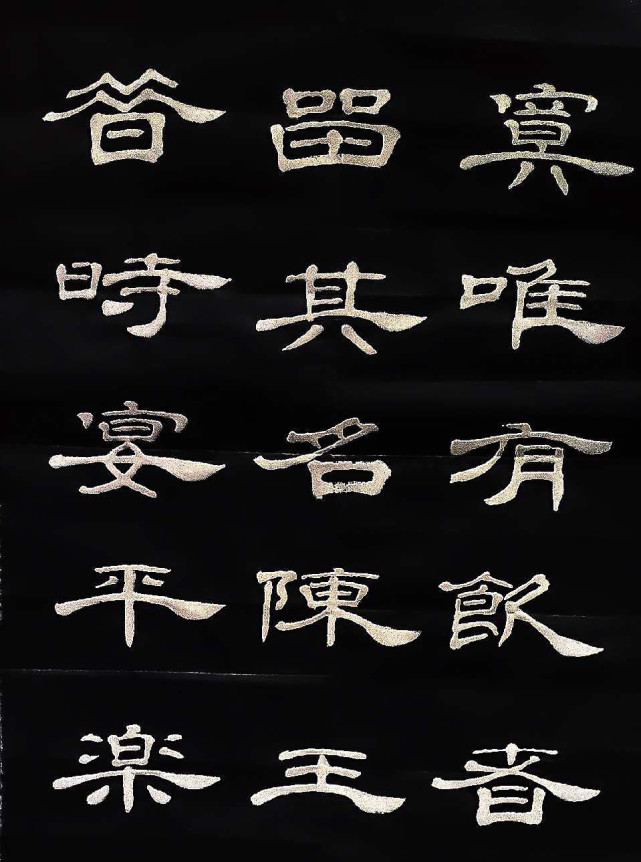 寞唯有飲者
留其名陳王
昔時宴平楽